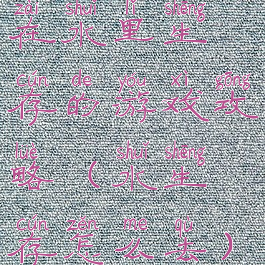 zài shuǐ lǐ shēng
在水里生
cún de yóu xì gōng
存的游戏攻
lüè shuǐ shēng
略（水生
cún zěn me qù
存怎么去）